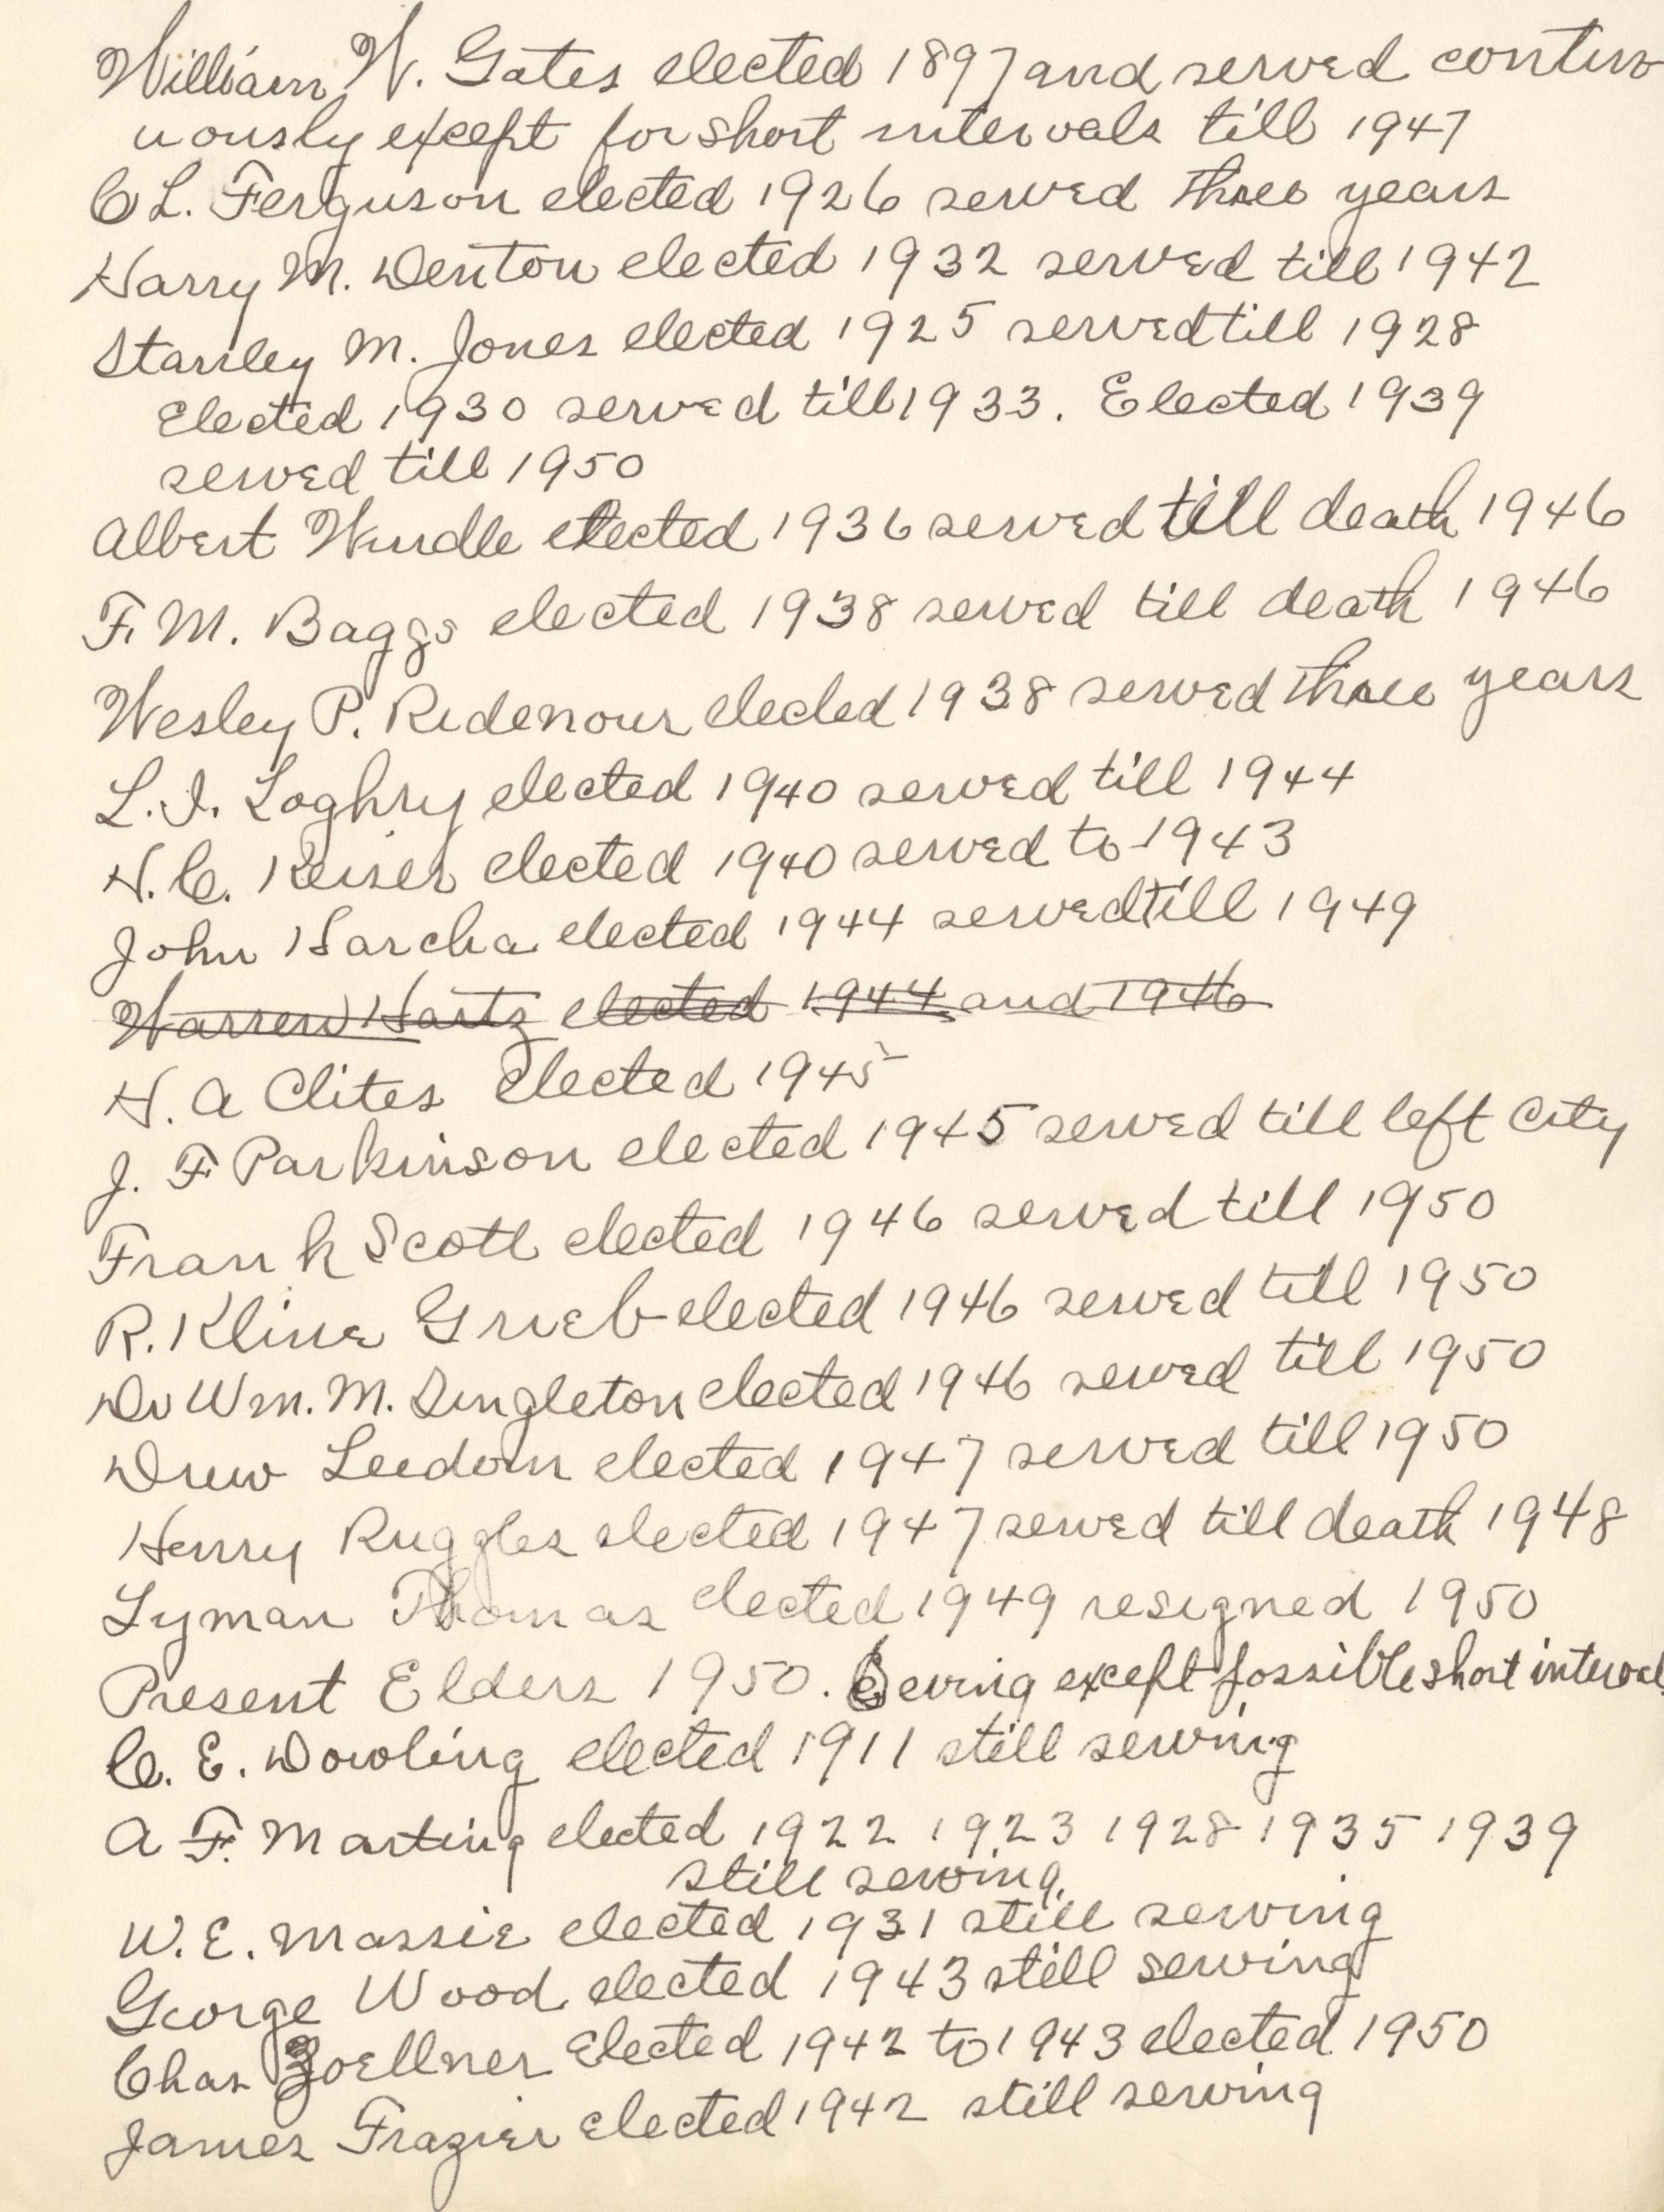 William W. Gates elected 1897 and served contin
uously except for short intervals till 1947
C L. Ferguson elected 1926 served three years
Harry M. Denton elected 1932 served till 1942
Stanley M. Jones elected 1925 served till 1928
Elected 1930 served till 1933. Elected 1939
served till 1950
Albert Windle elected 1936 served till death 1946
F. M. Baggs elected 1938 served till death 1946
Wesley P. Ridenour elected 1938 served three years
L. I. Loghry elected 1940 served till 1944
H. C. Keiser elected 1940 served to 1943
John Harcha elected 1944 served till 1949
Warren Hartz elected 1944 and 1946
H. A Clites Elected 1945
J. F Parkinson elected 1945 served till left City
Frank Scott elected 1946 served till 1950
R. Kline Grieb elected 1946 served till 1950
Dr Wm. M. Singleton elected 1946 served till 1950
Drew Leedom elected 1947 served till 1950
Henry Ruggles elected 1947 served till death 1948
Lyman Thomas elected 1949 resigned 1950
Present Elders 1950. except possible short interval
C. E. Dowling elected 1911 still serving
A F. Marting elected 1922 1923 1928 1935 1939
still serving
W. E. Massie elected 1931 still serving
George Wood elected 1943 still serving
Chas Zoellner Elected 1942 to 1943 elected 1950
James Frazier elected 1942 still serving